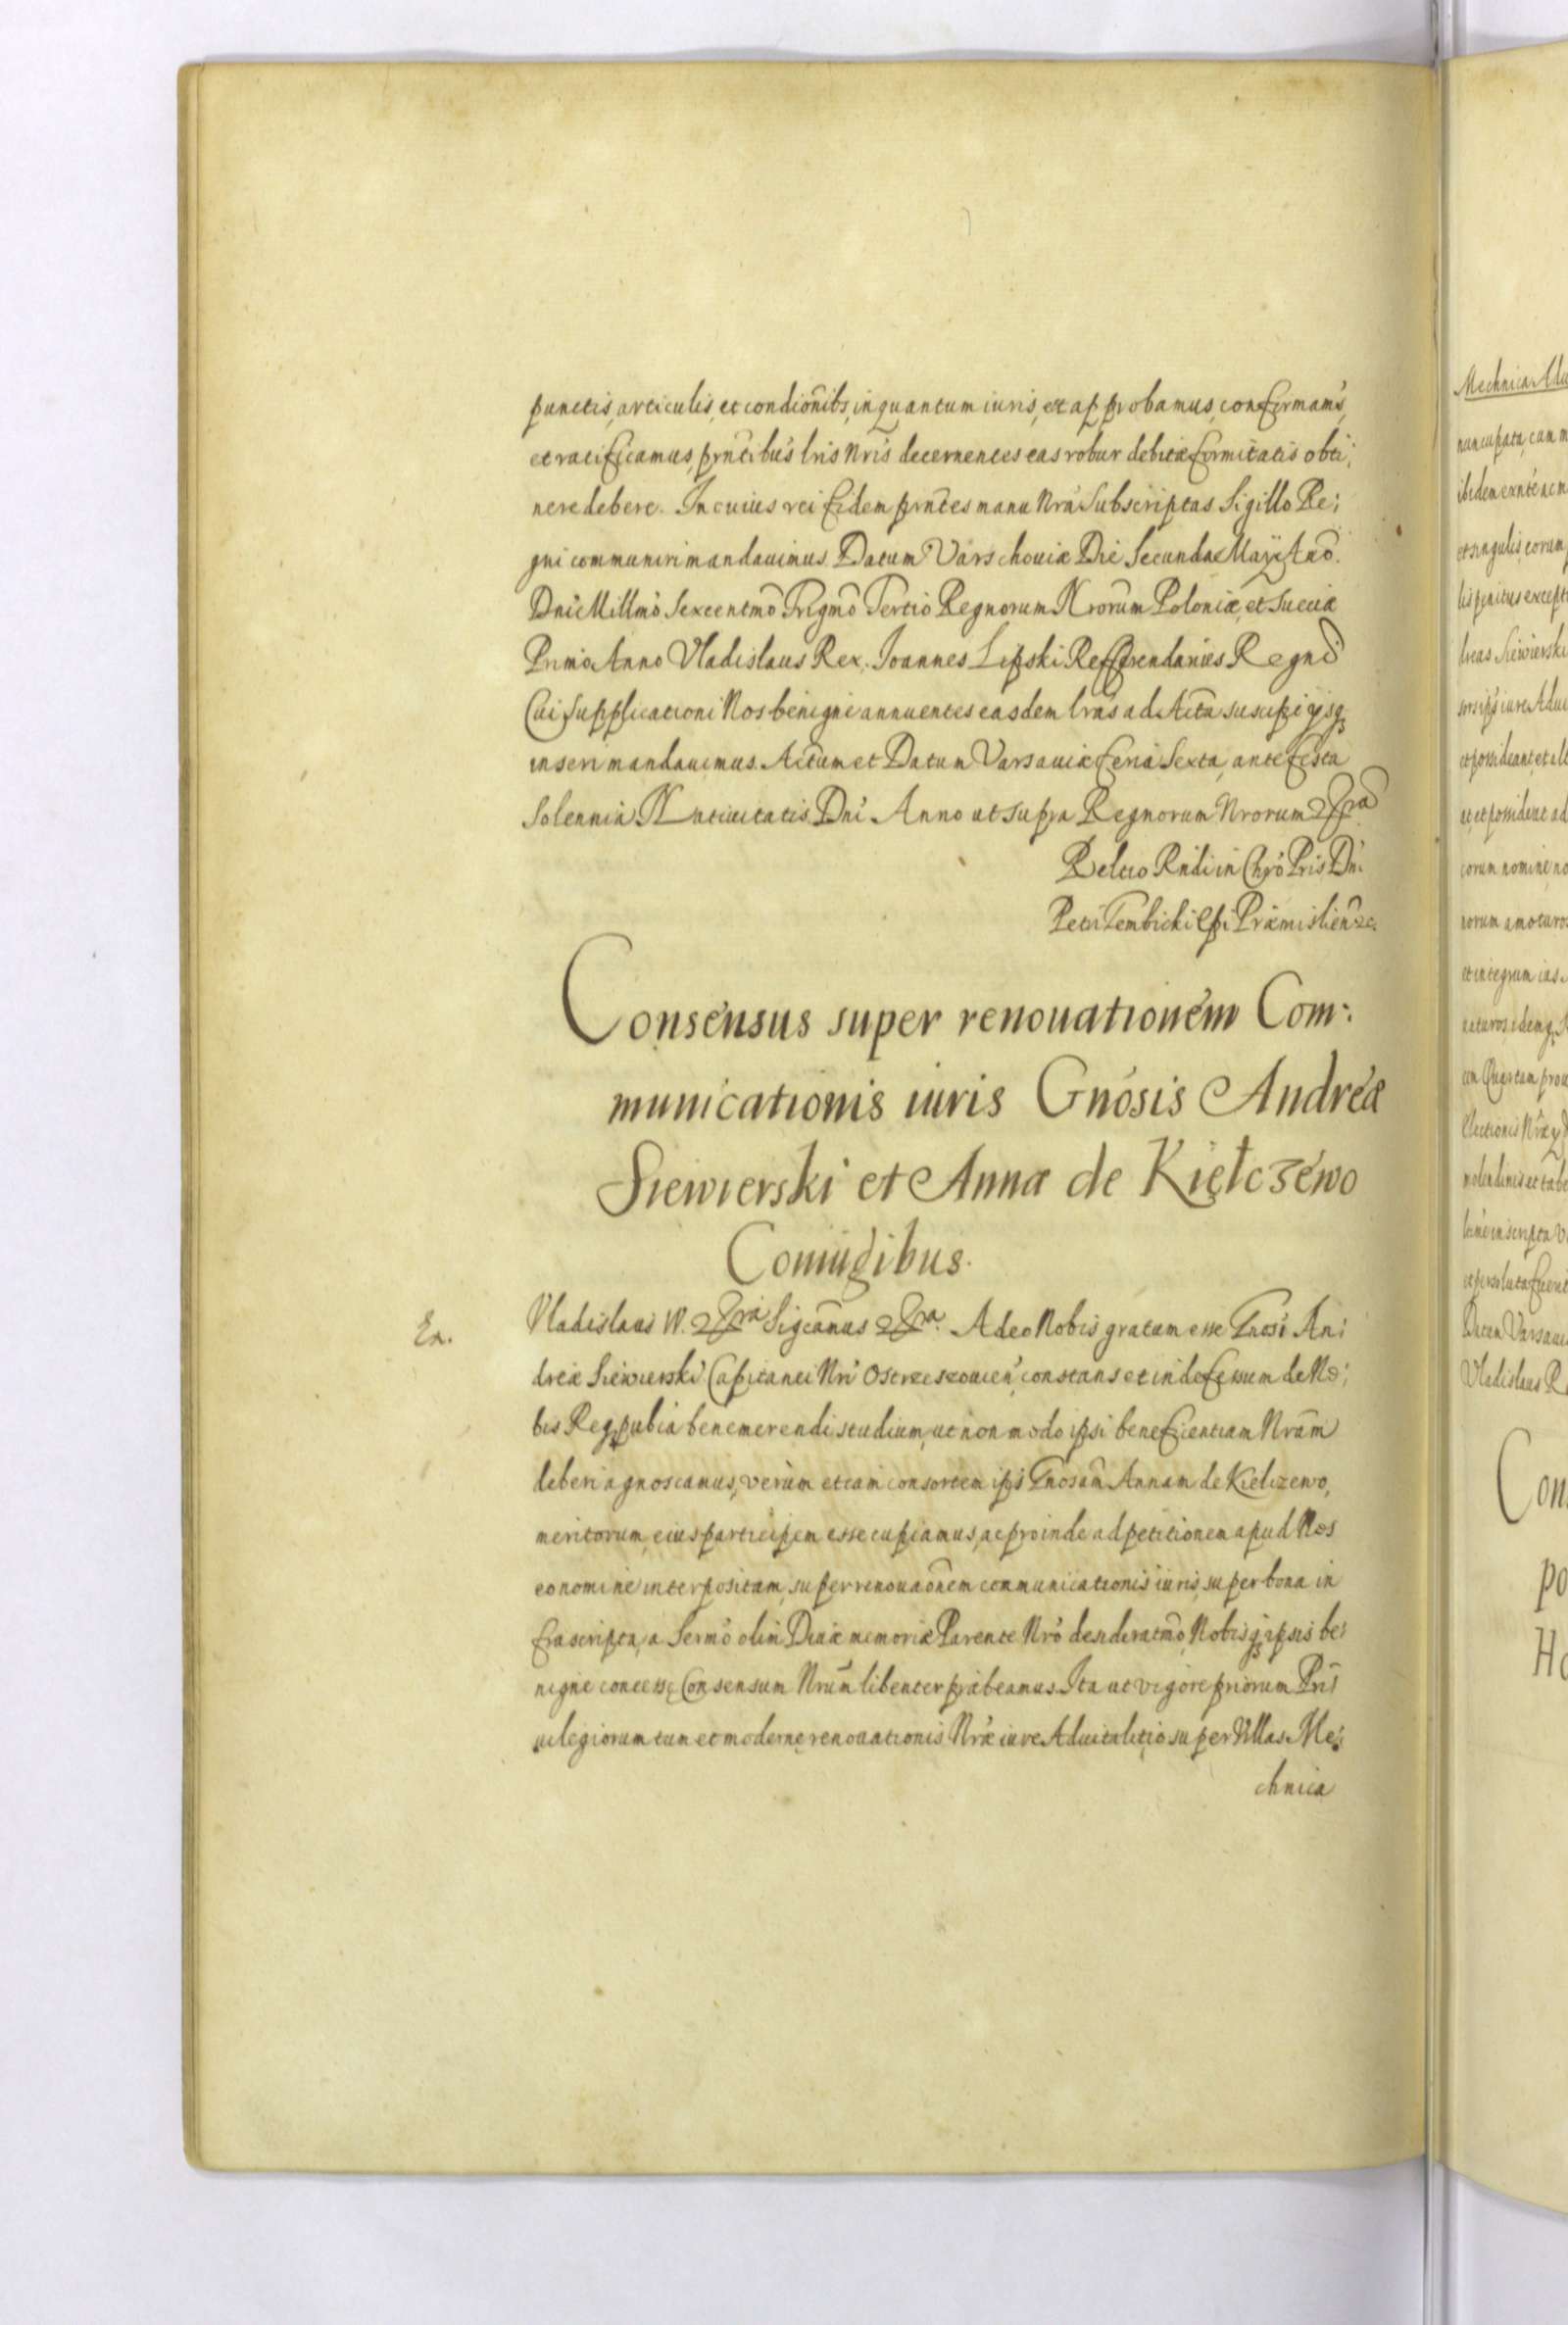 punctis, articulis, et condionibs, inquantum iuris, et approbamus, confirmams,
et ratificamus, prntibus lris Nris decernentes eas robur debitæ firmitatis obti,
nere debere. In cuius rei fidem prntes manu Nra Subscriptas Sigillo Re,
gni communiri mandauimus. Datum Varschouiæ Die Secunda Maÿ Ano
Dni Millmo Sexcentmo Trigmo Tertio Regnorum Nrorum Poloniæ, et Sueciæ
Primo Anno Vladislaus Rex. Ioannes Lipski Refferendarius Regni
Cui supplicationi Nos benigne annuentes easdem lras ad Acta suscipi ysq
inseri mandauimus. Actum et Datum Varsauiæ feria Sexta, ante festa
Solennia Natiuitatis Dni Anno ut supra Regnorum Nrorum
Relatio Rndi in Chro Pris Dni
Petri Gembicki Epi Præmislien
Consensus super renouationem Com:
municationis iuris Gnosis Andreæ
Siewierski et Annæ de Kiełczewo
Coniugibus.
En.
Vladislaus IV. Sigcamus Adeo Nobis gratum esse Gnosi An,
dreæ Siewierski Capitanei Nri Ostrzeszouien constans et indefessum de No,
bis Reqpubca benemerendi studium, ut non modo ipsi beneficientiam Nram
deberi agnoscamus, verùm etiam consortem ips Gnosam Annam de Kielczewo,
meritorum eius participem esse cupiamus, ac proinde ad petitionem apud Nos
eo nomine interpositam, super renouaonem communicationis iuris, super bona in
frascripta, a Sermo olim Diuæ memoriæ Parente Nro desideratmo, Nobisq ipsis be,
nigne concesse Consensum Nrum libenter præbeamus. Ita ut vigore priorum Pri
uilegiorum tum et moderne renouationis Nræ iure Aduitalitio super Villas Me,
chnica